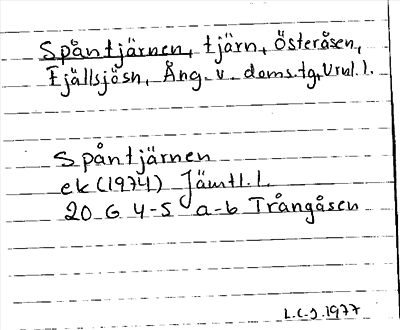 Spåntjärnen, tjärn, Österåsen,
Fjällsjösn, Ång. v. doms.tg, Vrnl.l.
Spåntjärnen
ek (1974) Jämtl.l.
20 G 4-5 a-b Trångåsen
L.C-J. 1977